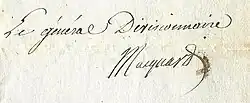 Le général Divisionnaire
Macquard